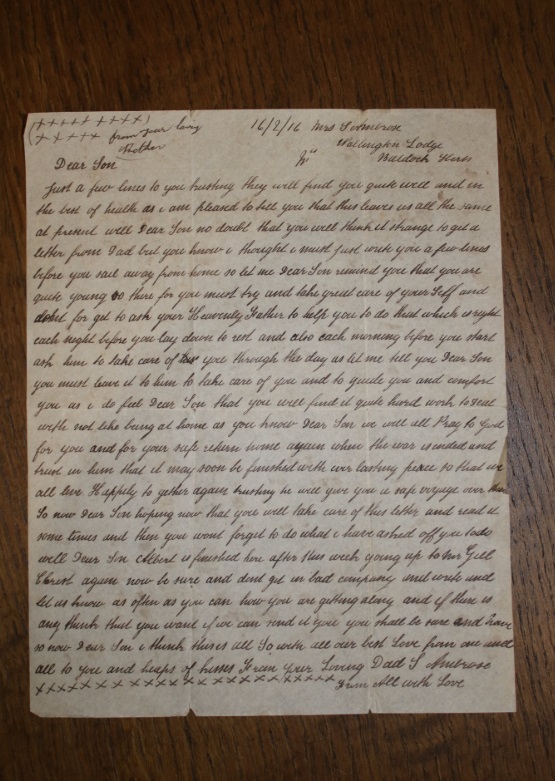 (+++++ ++++)
+++++ from your loving
Mother
16/2/16 Mrs S Ambrose
Wallington Lodge
Nr Baldock Herts
Dear Son
Just a few lines to you trusting they will find you quite well and in
the best of health as i am pleased to tell you that this leaves us all the same
at present well Dear Son no doubt that you will think it strange to get a
letter from Dad but you know i thought i must just write you a few lines
before you sail away from home so let me Dear Son remind you that you are
quite young so there for you must try and take great care of your self and
dont for get to ask your Heavenly Father to help you to do that which is right
each night before you lay down to rest and also each morning before you start
ask him to take care of you through the day as let me tell you Dear Son
you must leave it to him to take care of you and to guide you and comfort
you as i do feel Dear Son that you will find it quite hard work to deal
with not like being at home as you know Dear Son we will all Pray to God
for you and for your safe return home again when the war is ended and
trust in him that it may soon be finished with ever lasting peace so that we
all live Happily to gether again trusting he will give you a safe voyage over
So now Dear Son hoping now that you will take care of this letter and read it
some times and then you wont forget to do what i have asked off you to do
well Dear Son Albert is finished here after this week going up to Mr Gill
Christ again now be sure and dont get in bad company and write and
let us know as often as you can how you are getting along and if there is
any think that you want if we can send it you you shall be sure and have
so now Dear Son i think this is all So with all our best Love from one and
all to you and heaps of kisses From your Loving Dad S Ambrose
+++++++++++++++++++++++++ From All with Love